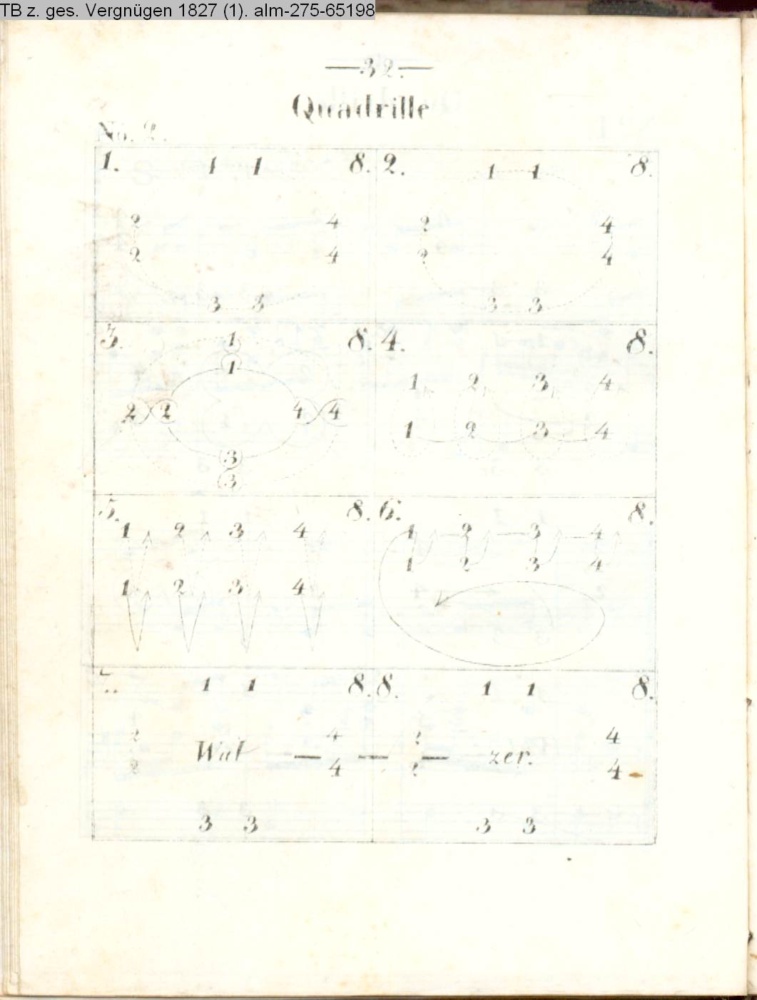 TB z. ges. Vergnügen 1827 (1). alm-275-65198
—32.—
Quadrille
No. 2.
1. 1 1 8. 2. 1 1 8.
2 4 2 4
2 4 2 4
3 3 3 3
3. 1 8. 4. 8.
1 1 2 3 4
2 2 4 4 1 2 3 4
3
3
5. 8. 6. 8.
1 2 3 4 1 2 3 4
1 2 3 4 1 2 3 4
7. 1 1 8. 8. 1 1 8.
2 4 2 4
Wal — — — zer.
2 4 2 4
3 3 3 3